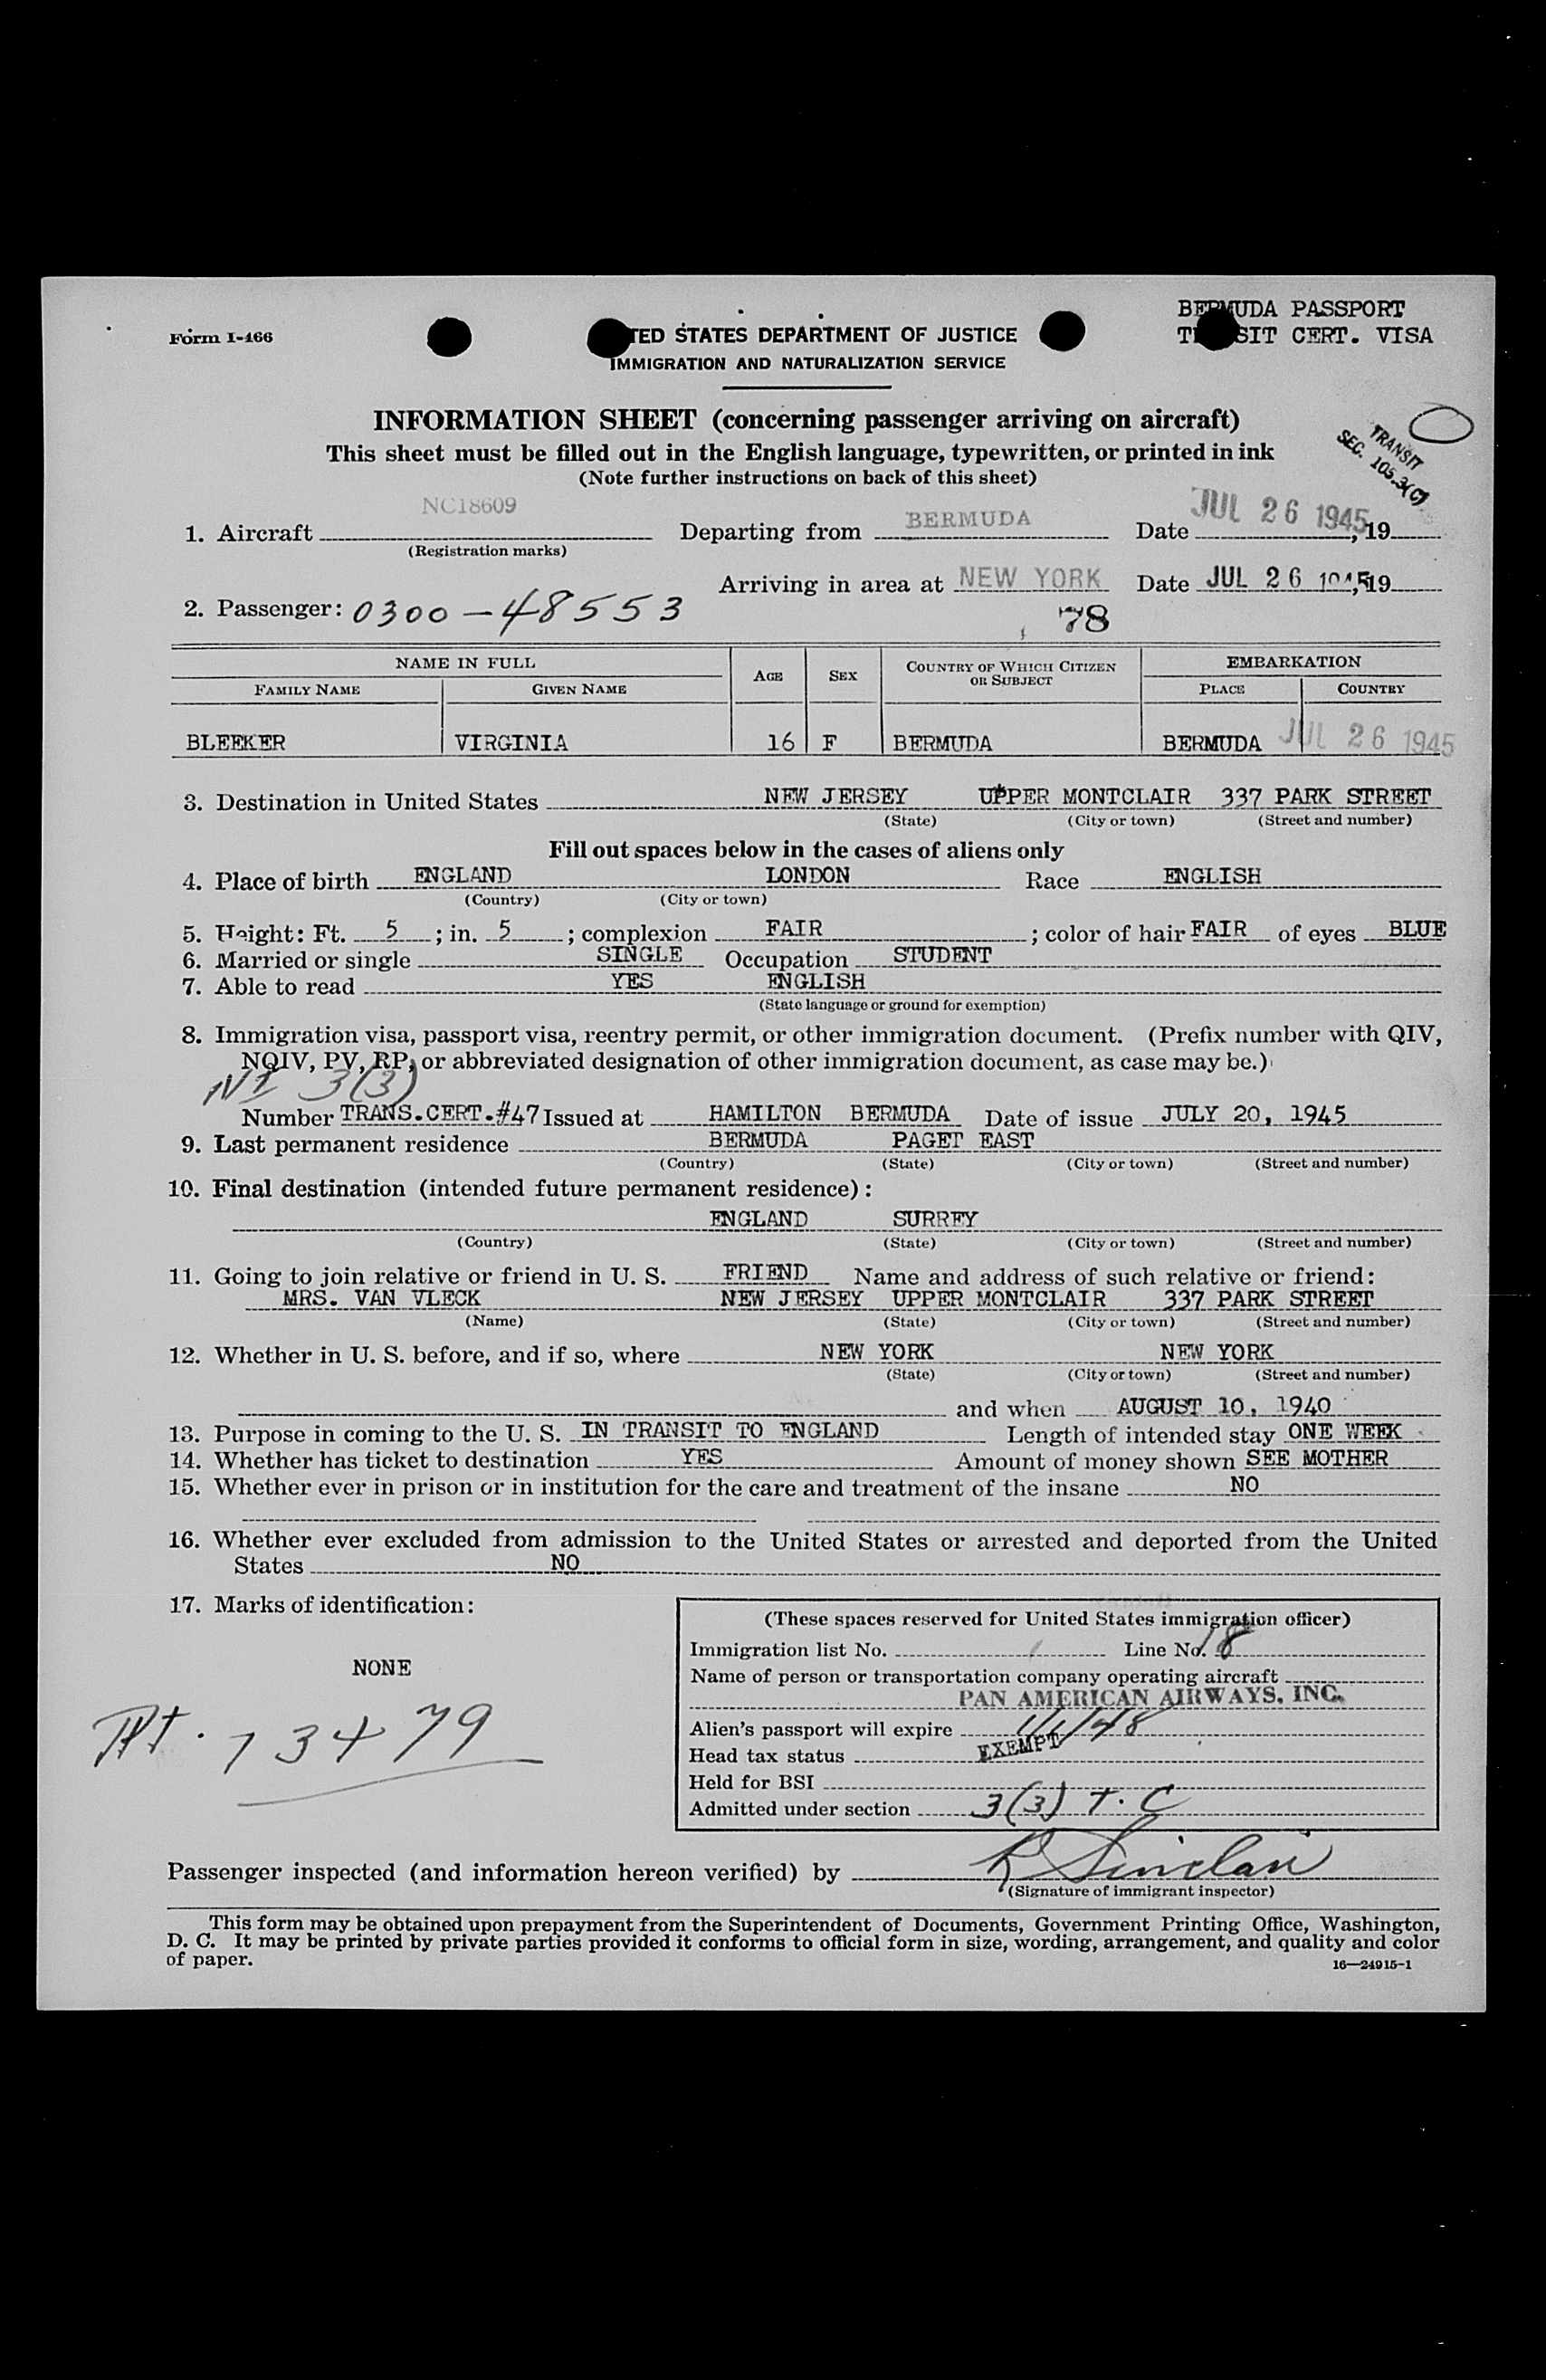 BERMUDA PASSPORT
Form I-466
TED STATES DEPARTMENT OF JUSTICE
SIT CERT. VISA
IMMIGRATION AND NATURALIZATION SERVICE
INFORMATION SHEET (concerning passenger arriving on aircraft)
This sheet must be filled out in the English language, typewritten, or printed in ink
(Note further instructions on back of this sheet)
TRANSIT
SEC. 105.3(C)
1. Aircraft NC18609 Departing from BERMUDA Date JUL 26 1945, 19
(Registration marks)
Arriving in area at NEW YORK Date JUL 26 1945, 19
2. Passenger: 0300-48553 78
NAME IN FULL AGE SEX COUNTRY OF WHICH CITIZEN OR SUBJECT EMBARKATION
FAMILY NAME GIVEN NAME PLACE COUNTRY
BLEEKER VIRGINIA 16 F BERMUDA BERMUDA JUL 26 1945
3. Destination in United States NEW JERSEY UPPER MONTCLAIR 337 PARK STREET
(State) (City or town) (Street and number)
Fill out spaces below in the cases of aliens only
4. Place of birth ENGLAND LONDON Race ENGLISH
(Country) (City or town)
5. Height: Ft. 5 ; in. 5 ; complexion FAIR ; color of hair FAIR of eyes BLUE
6. Married or single SINGLE Occupation STUDENT
7. Able to read YES ENGLISH
(State language or ground for exemption)
8. Immigration visa, passport visa, reentry permit, or other immigration document. (Prefix number with QIV,
NQIV, PV, RP, or abbreviated designation of other immigration document, as case may be.)
3(3)
Number TRANS.CERT.#47 Issued at HAMILTON BERMUDA Date of issue JULY 20, 1945
9. Last permanent residence BERMUDA PAGET EAST
(Country) (State) (City or town) (Street and number)
10. Final destination (intended future permanent residence):
ENGLAND SURREY
(Country) (State) (City or town) (Street and number)
11. Going to join relative or friend in U. S. FRIEND Name and address of such relative or friend:
MRS. VAN VLECK NEW JERSEY UPPER MONTCLAIR 337 PARK STREET
(Name) (State) (City or town) (Street and number)
12. Whether in U. S. before, and if so, where NEW YORK NEW YORK
(State) (City or town) (Street and number)
and when AUGUST 10, 1940
13. Purpose in coming to the U. S. IN TRANSIT TO ENGLAND Length of intended stay ONE WEEK
14. Whether has ticket to destination YES Amount of money shown SEE MOTHER
15. Whether ever in prison or in institution for the care and treatment of the insane NO
16. Whether ever excluded from admission to the United States or arrested and deported from the United
States NO
17. Marks of identification:
NONE
13479
(These spaces reserved for United States immigration officer)
Immigration list No. Line No. 18
Name of person or transportation company operating aircraft
PAN AMERICAN AIRWAYS, INC.
Alien's passport will expire 1/1/48
Head tax status EXEMPT
Held for BSI
Admitted under section 3(3) T. C
Passenger inspected (and information hereon verified) by R Sinclair
(Signature of immigrant inspector)
This form may be obtained upon prepayment from the Superintendent of Documents, Government Printing Office, Washington,
D. C. It may be printed by private parties provided it conforms to official form in size, wording, arrangement, and quality and color
of paper.
16—24915-1